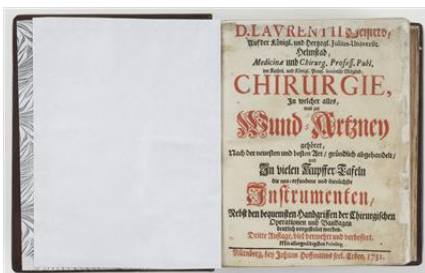 D. LAVRENTII Heisters,
Auf der Königl. und Hertzogl. Julius-Universit.
Helmstad,
Medicinæ und Chirurg. Profess. Publ.
der Kayserl. und Königl. Mitglied,
CHIRURGIE,
In welcher alles,
was zur
Wund-Artzney
gehöret,
Nach der neuesten und besten Art / gründlich abgehandelt /
und
In vielen Kupffer-Tafeln
die neu-erfundene und dienlichste
Instrumenten,
Nebst den bequemsten Handgriffen der Chirurgischen
Operationen und Bandagen
deutlich vorgestellet werden.
Dritte Auflage, viel vermehrt und verbessert.
Mit allergnädigsten Privilegiis.
Nürnberg, bey Johann Hoffmanns seel. Erben, 1731.